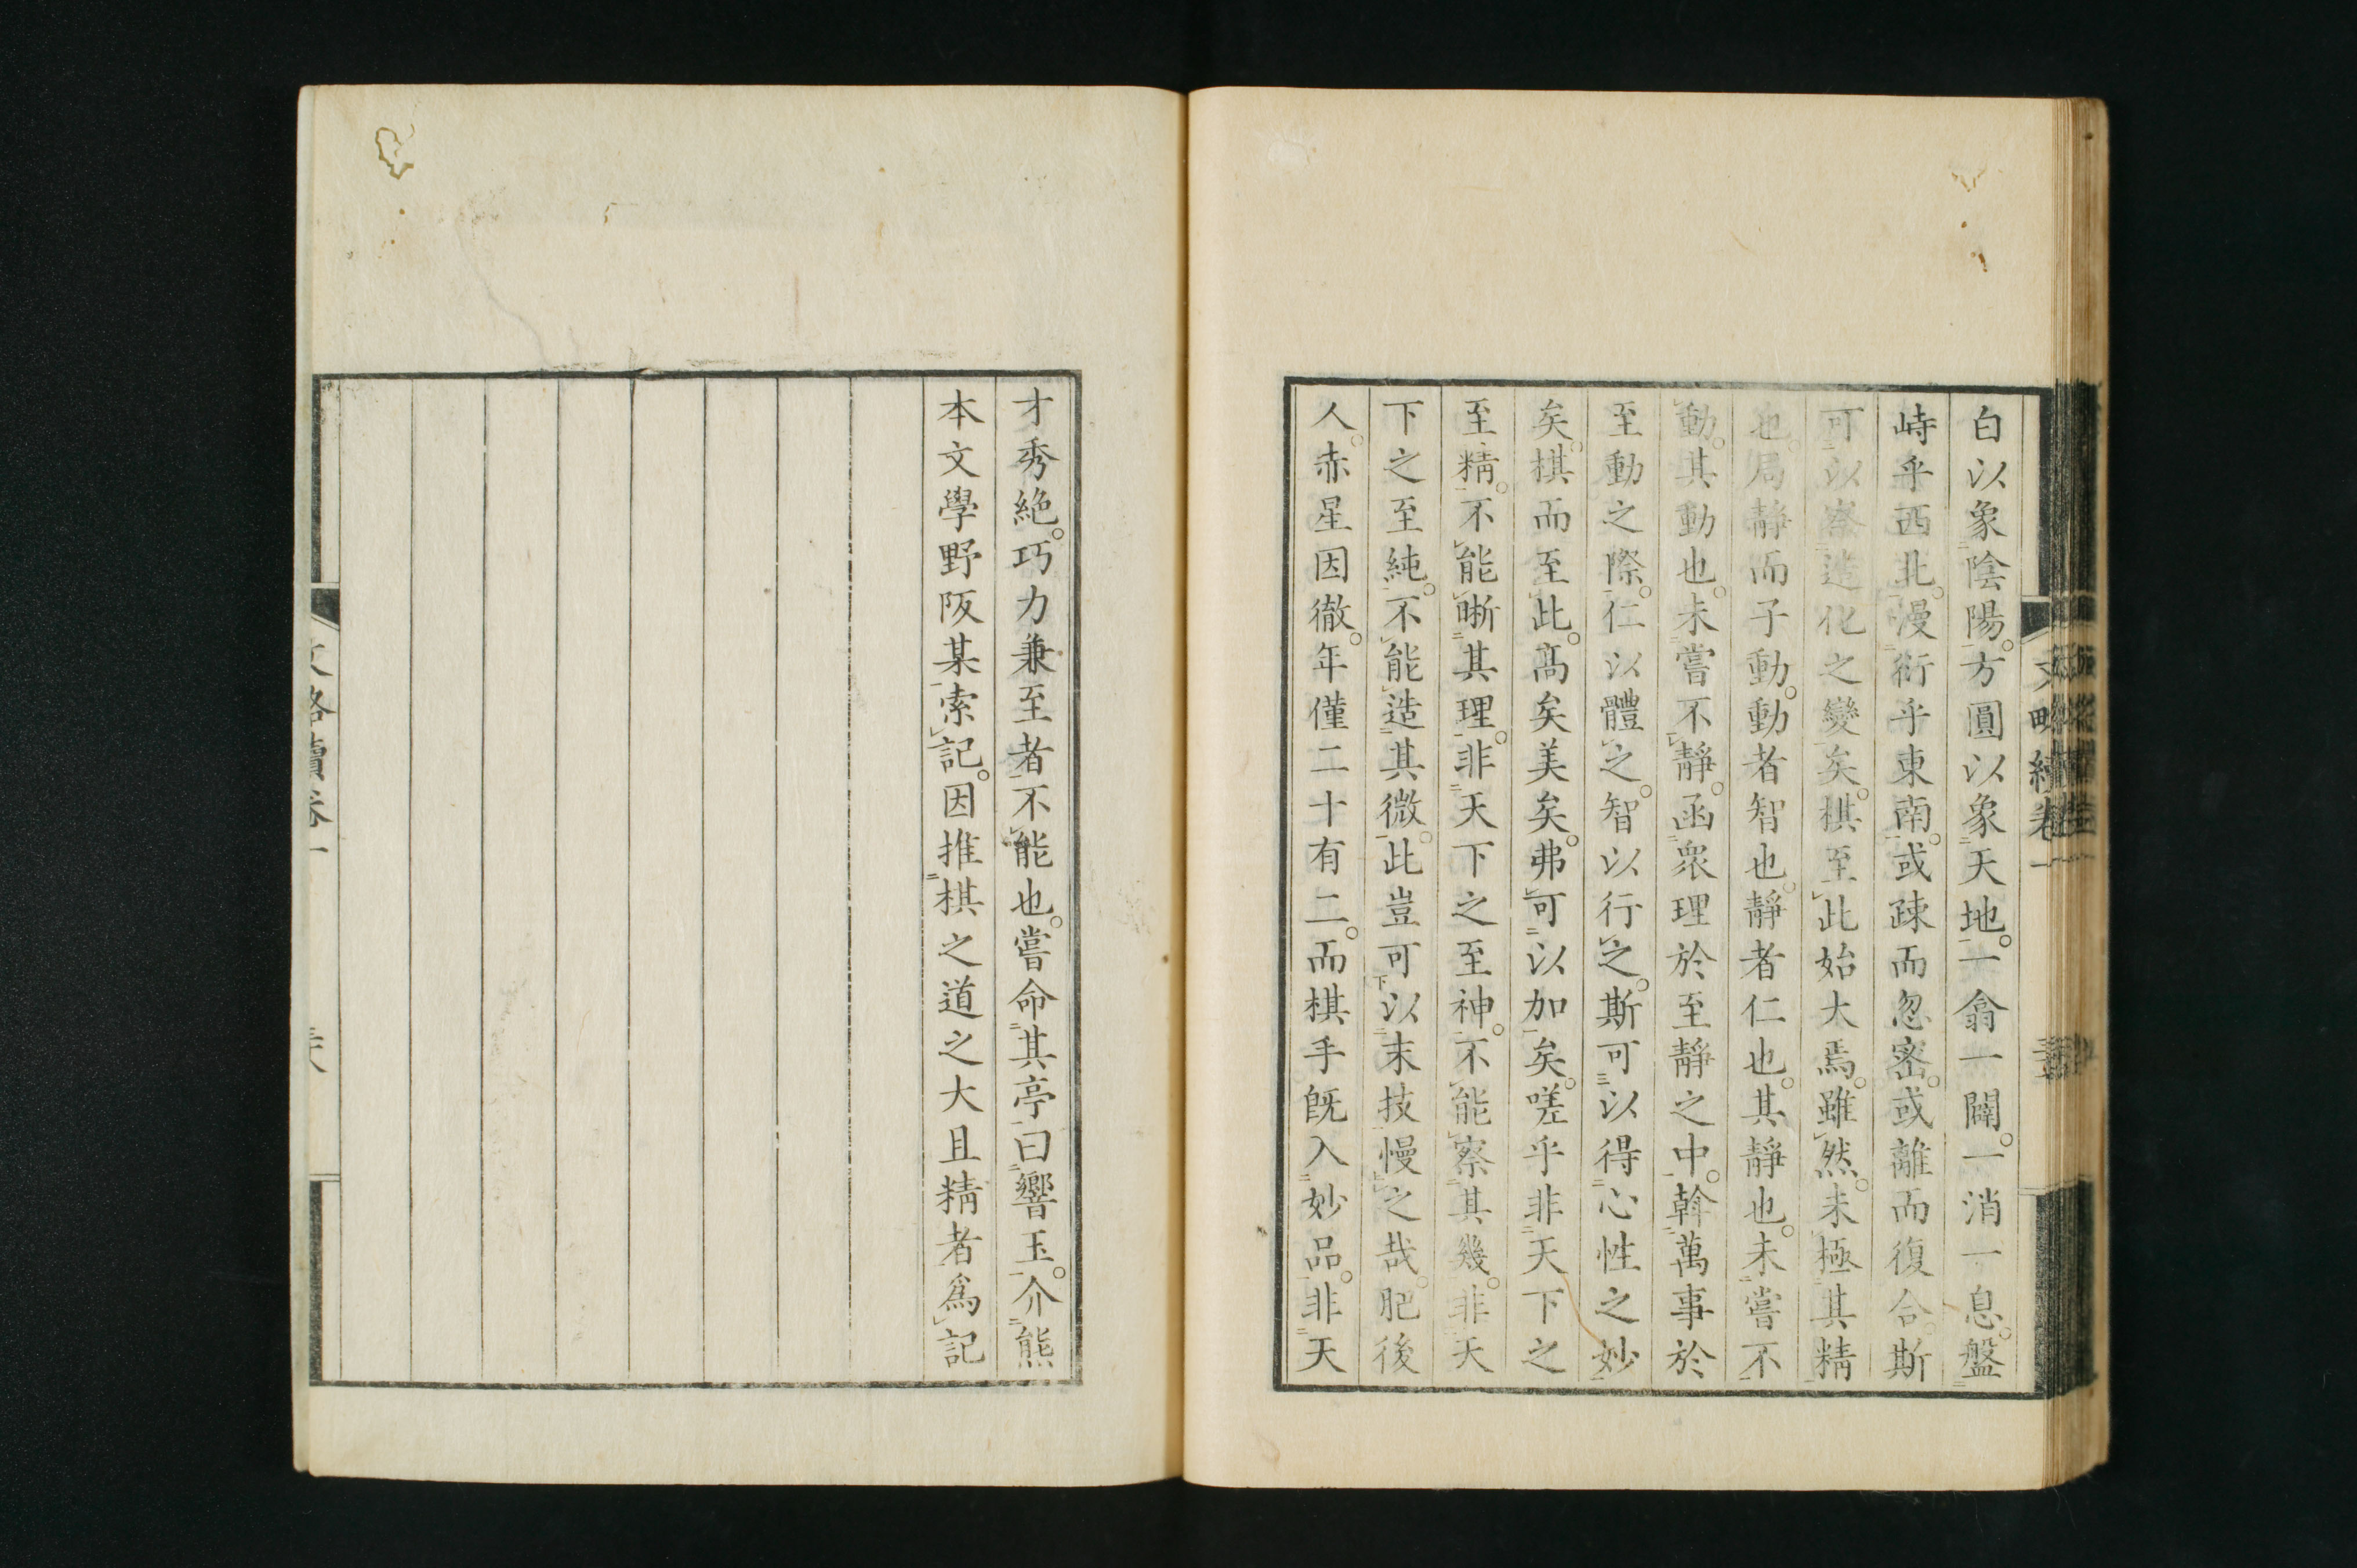 白以象陰陽。方圓以象天地。一翕一闢。一消一息。盤
峙乎西北。漫衍乎東南。或疎而忽密。或離而復合。斯
可以察造化之變矣。棋至此始大焉。雖然。未極其精
也。局靜而子動。動者智也。靜者仁也。其靜也。未嘗不
動。其動也。未嘗不靜。函衆理於至靜之中。斡萬事於
至動之際。仁以體之。智以行之。斯可以得心性之妙
矣。棋而至此。髙矣美矣。弗可以加矣。嗟乎非天下之
至精。不能晰其理。非天下之至神。不能察其幾。非天
下之至純。不能造其微。此豈可以末技慢之哉。肥後
人。赤星因徹。年僅二十有二。而棋手既入妙品。非天
文略續卷一
才秀絶。巧力兼至者不能也。嘗命其亭曰響玉。介熊
本文學野阪某索記。因推棋之道之大且精者爲記
文略續卷一